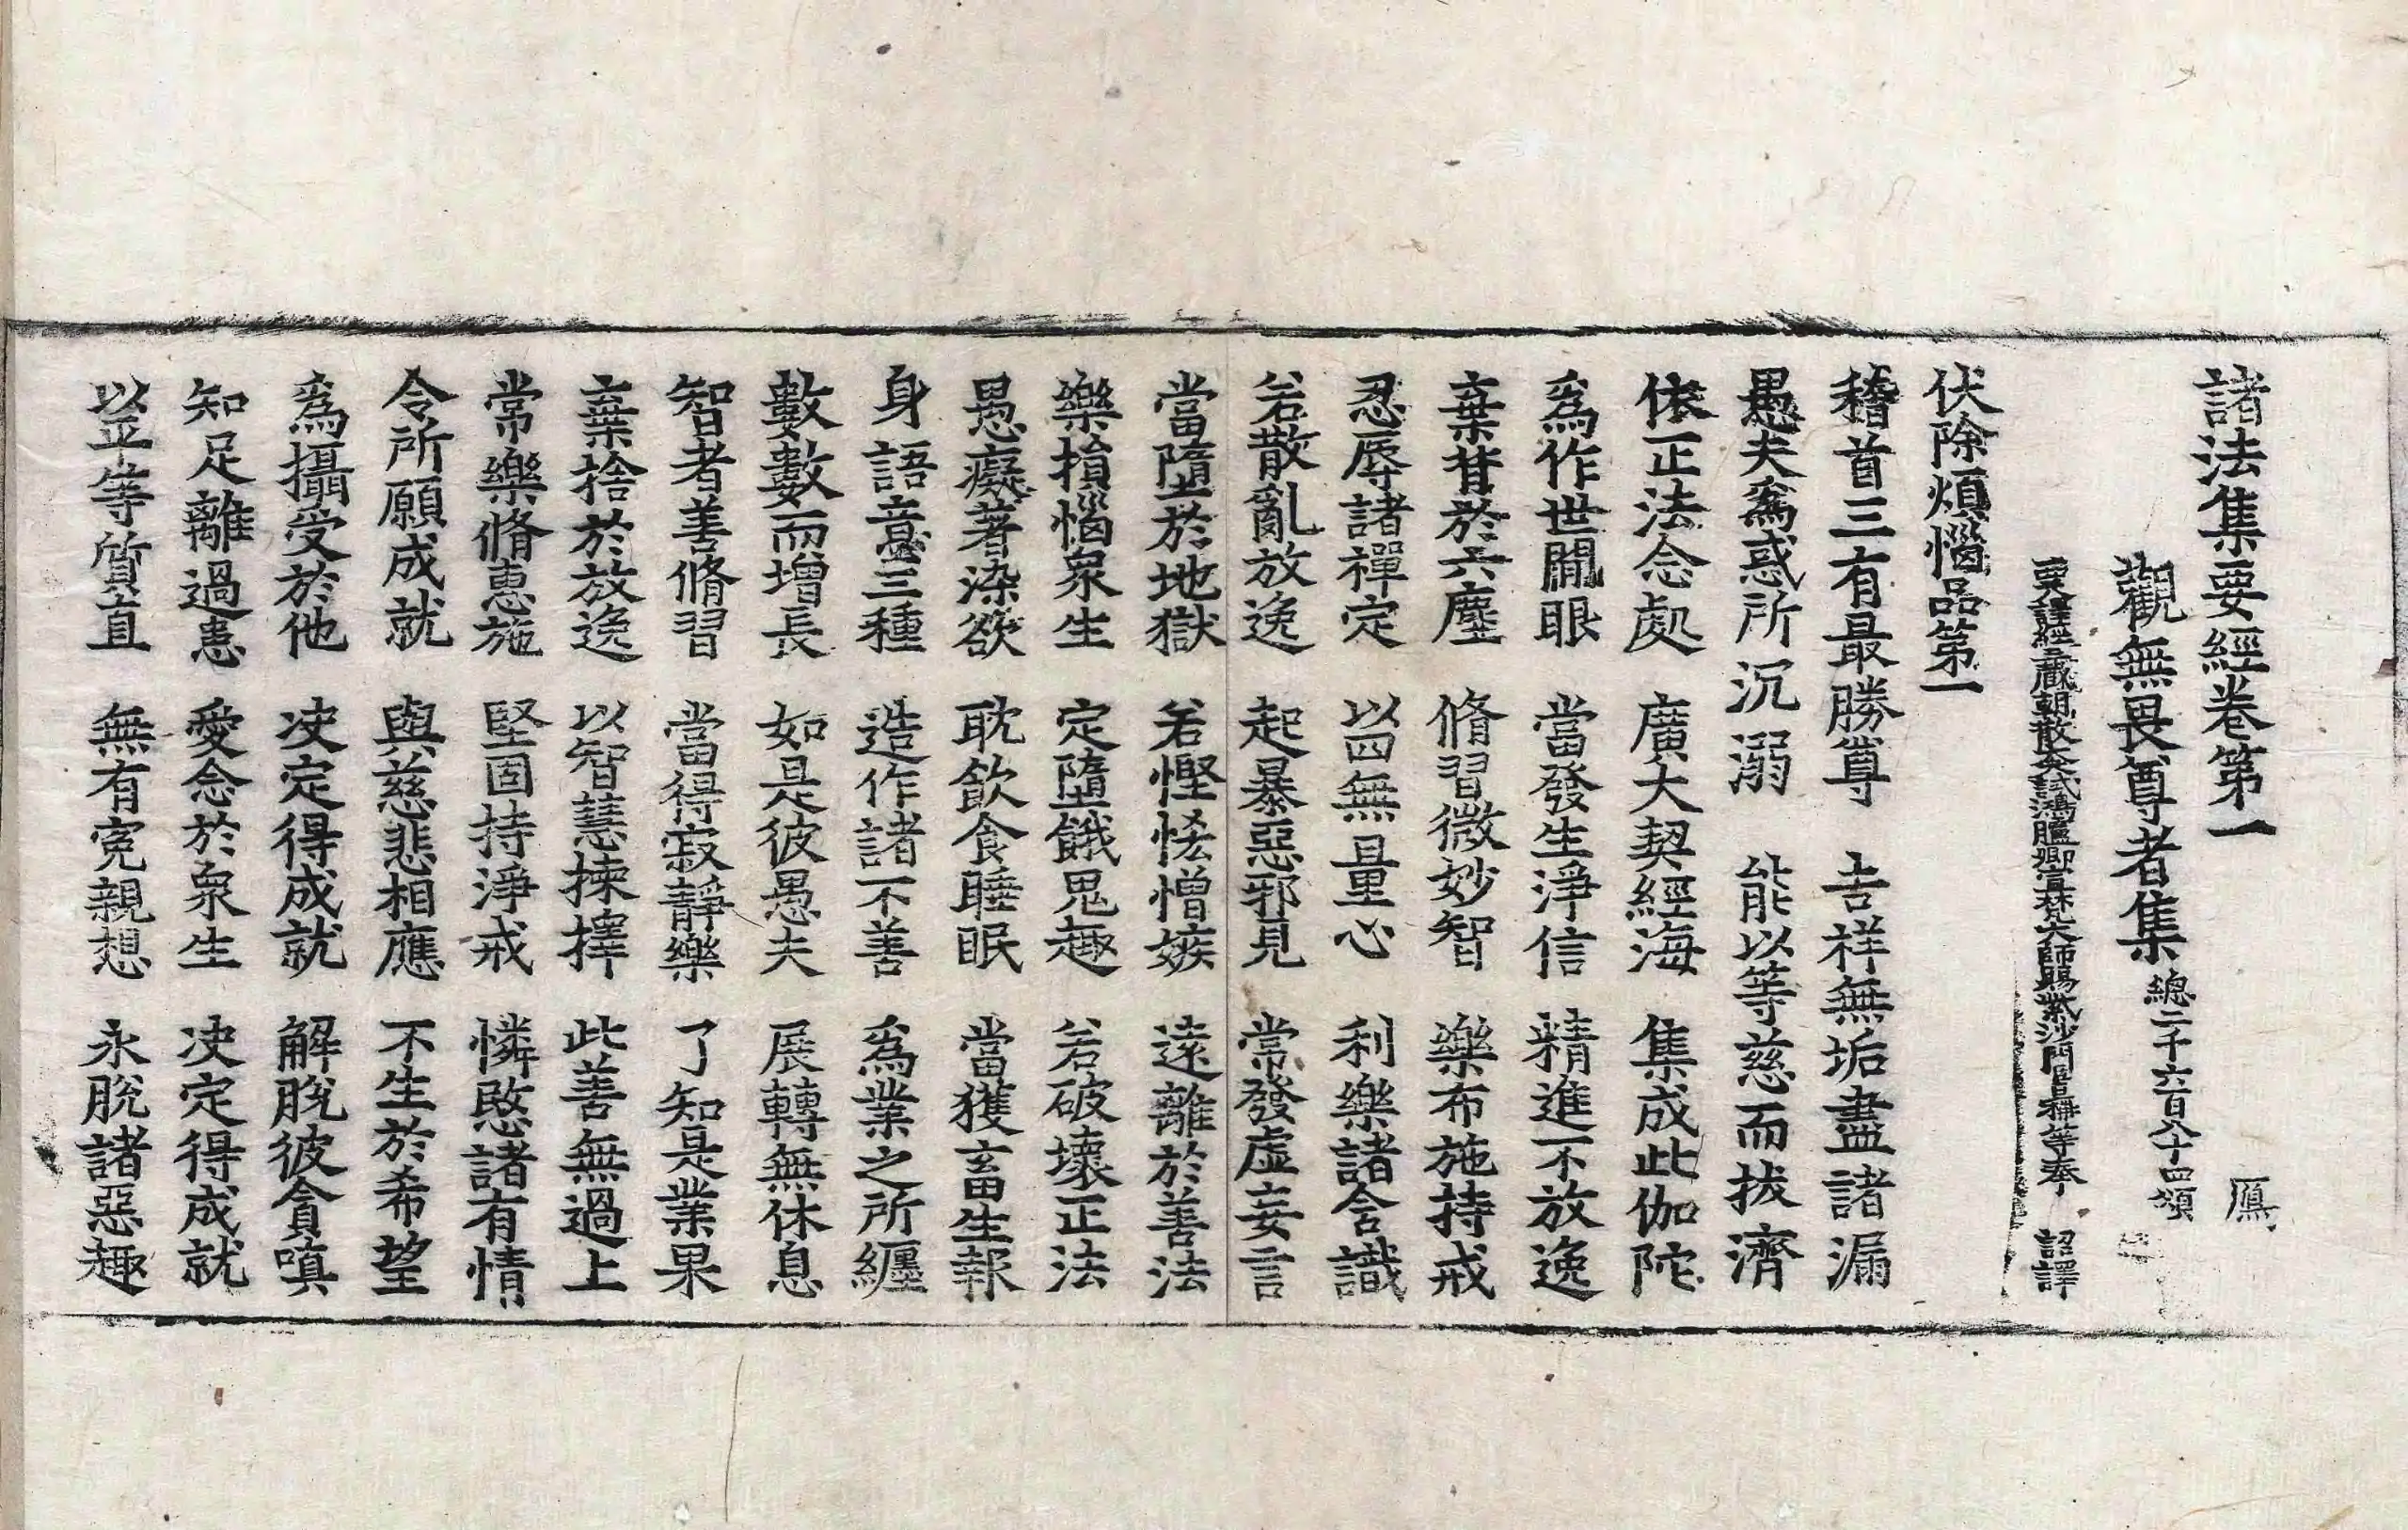 諸法集要經卷第一 鴈
觀無畏尊者集 總二千六百八十四頌
西天譯經三藏朝散大夫試鴻臚卿宣梵大師賜紫沙門臣日稱等奉 詔譯
伏除煩惱品第一
稽首三有最勝尊 吉祥無垢盡諸漏
愚夫爲惑所沉溺 能以等慈而拔濟
依正法念處 廣大契經海 集成此伽陀
爲作世間眼 當發生淨信 精進不放逸
棄背於六塵 脩習微妙智 樂布施持戒
忍辱諸禪定 以四無量心 利樂諸含識
若散亂放逸 起暴惡邪見 常發虛妄言
當墮於地獄 若慳悋憎嫉 遠離於善法
樂損惱衆生 定墮餓鬼趣 若破壞正法
愚癡著染欲 耽飲食睡眠 當獲畜生報
身語意三種 造作諸不善 爲業之所纏
數數而增長 如是彼愚夫 展轉無休息
智者善脩習 當得寂靜樂 了知是業果
棄捨於放逸 以智慧揀擇 此善無過上
常樂脩惠施 堅固持淨戒 憐愍諸有情
令所願成就 與慈悲相應 不生於希望
爲攝受於他 决定得成就 解脫彼貪嗔
知足離過患 愛念於衆生 决定得成就
以平等質直 無有寃親想 永脫諸惡趣